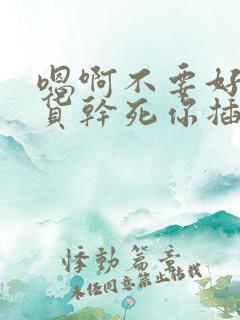 嗯啊不要好
貨幹死你插
悸動篇章
未经同意禁止转载